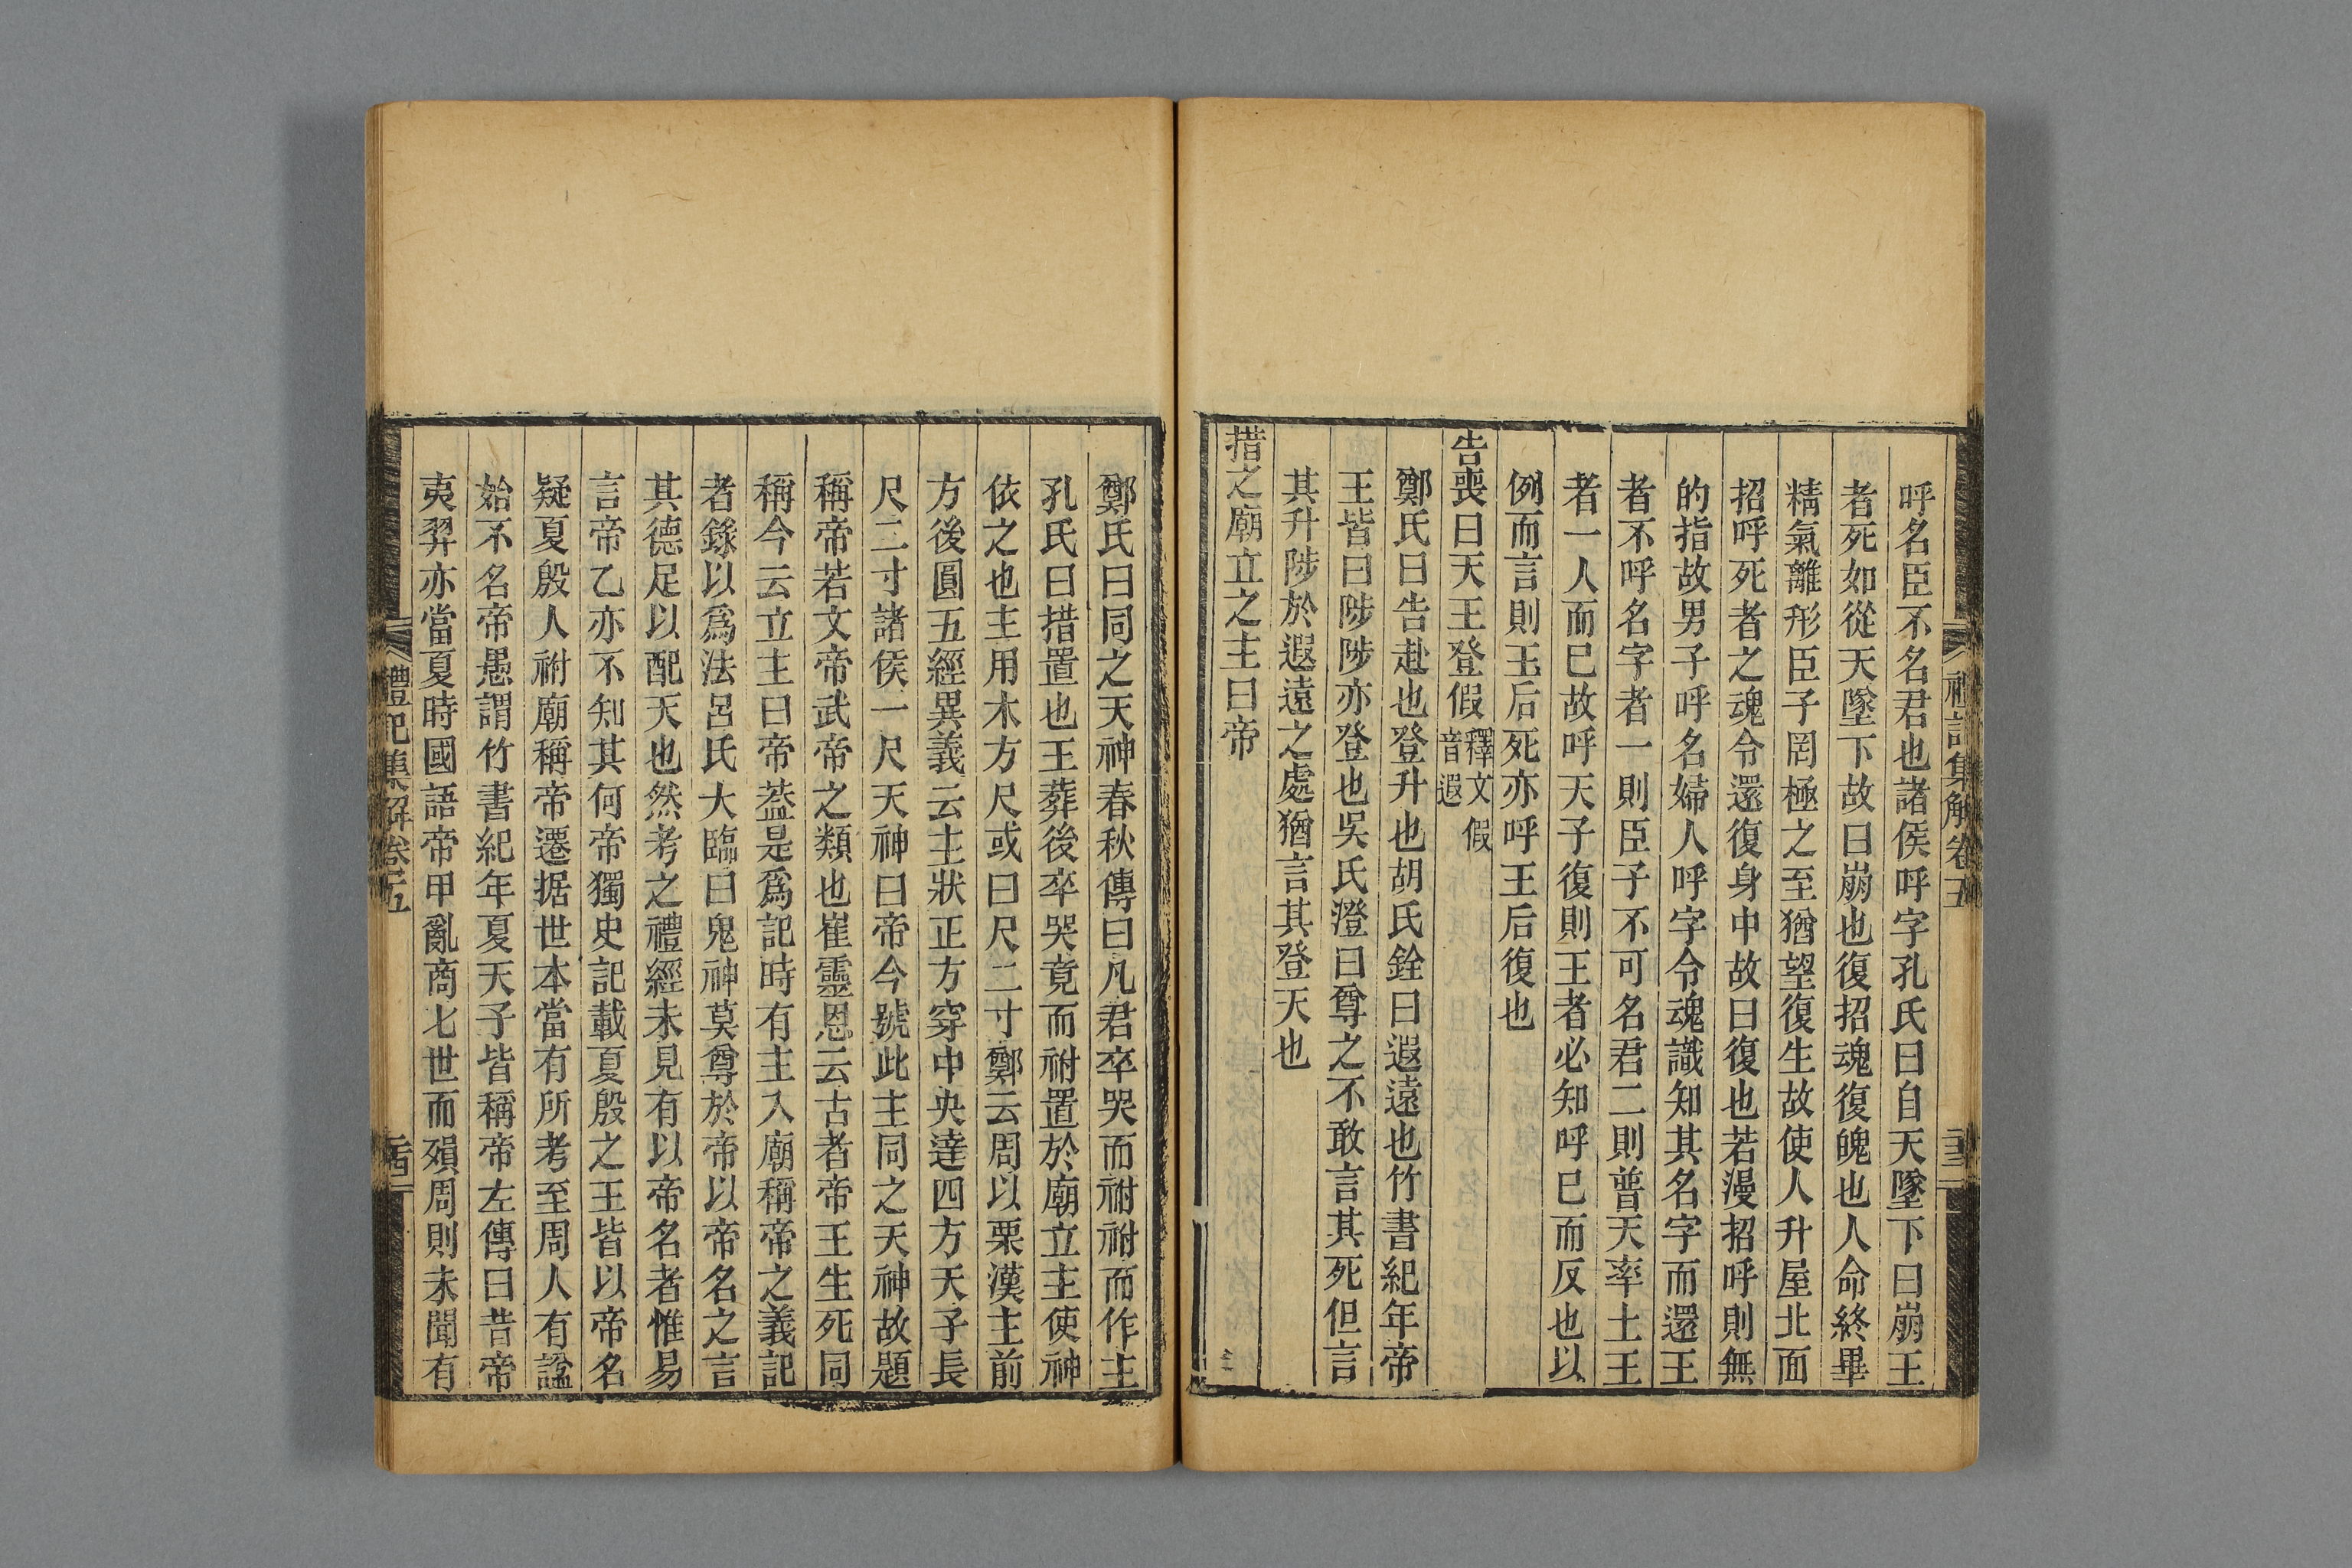 禮記集解卷五
呼名臣不名君也諸侯呼字孔氏曰自天墜下曰崩王
者死如從天墜下故曰崩也復招魂復魄也人命終畢
精氣離形臣子罔極之至猶望復生故使人升屋北面
招呼死者之魂令還復身中故曰復也若漫招呼則無
的指故男子呼名婦人呼字令魂識知其名字而還王
者不呼名字者一則臣子不可名君二則普天率土王
者一人而已故呼天子復則王者必知呼已而反也以
例而言則王后死亦呼王后復也
告喪曰天王登假釋文假音遐
鄭氏曰告赴也登升也胡氏銓曰遐遠也竹書紀年帝
王皆曰陟陟亦登也吳氏澄曰尊之不敢言其死但言
其升陟於遐遠之處猶言其登天也
措之廟立之主曰帝
鄭氏曰同之天神春秋傳曰凡君卒哭而祔祔而作主
孔氏曰措置也王葬後卒哭竟而祔置於廟立主使神
依之也主用木方尺或曰尺二寸鄭云周以栗漢主前
方後圓五經異義云主狀正方穿中央達四方天子長
尺二寸諸侯一尺天神曰帝今號此主同之天神故題
稱帝若文帝武帝之類也崔靈恩云古者帝王生死同
稱今云立主曰帝葢是爲記時有主入廟稱帝之義記
者錄以爲法呂氏大臨曰鬼神莫尊於帝以帝名之言
其德足以配天也然考之禮經未見有以帝名者惟易
言帝乙亦不知其何帝獨史記載夏殷之王皆以帝名
疑夏殷人祔廟稱帝遷据世本當有所考至周人有諡
始不名帝愚謂竹書紀年夏天子皆稱帝左傳曰昔帝
夷羿亦當夏時國語帝甲亂商七世而殞周則未聞有
禮記集解卷五